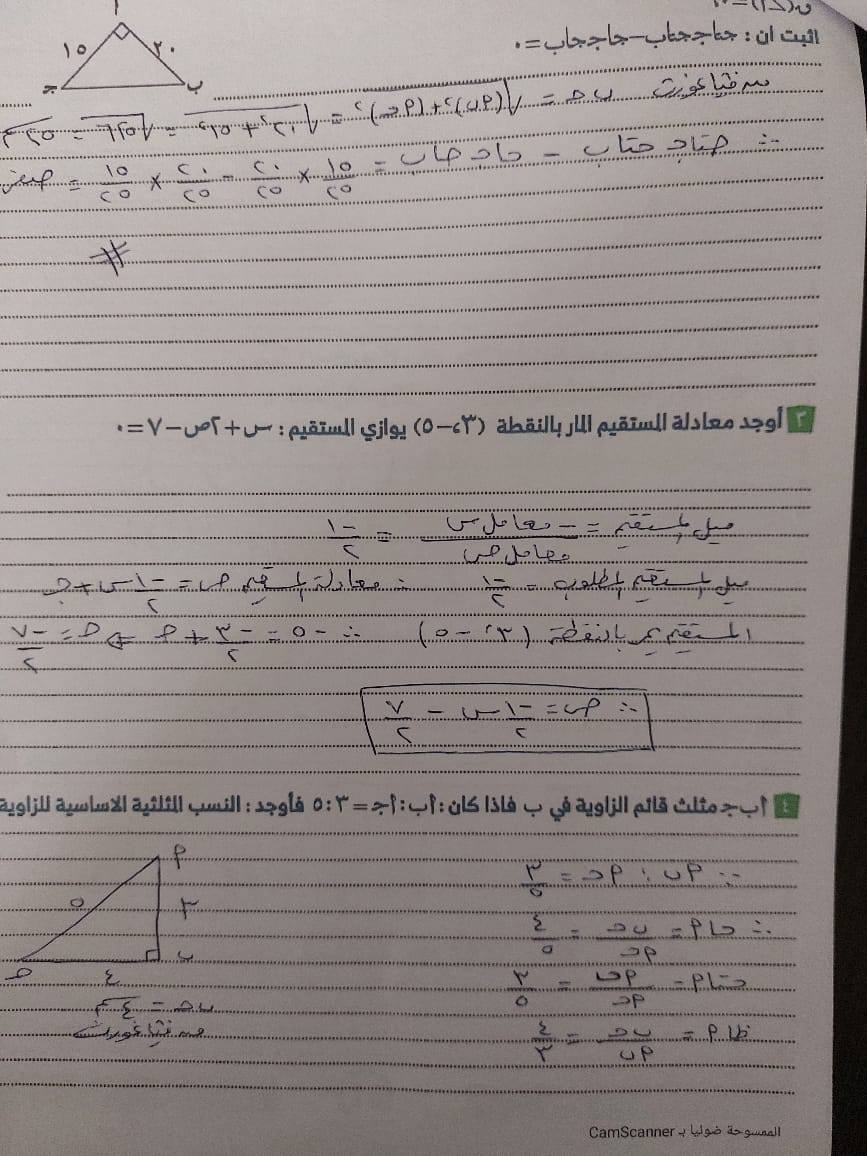 أ
١٥
٢٠
جـ
ب
اثبت ان : جتاججتاب-جاججاب=٠
من فيثاغورث ب حـ = √(٢(ب٩) + ٢(حـ٩)) = √(٢٢٠ + ٢١٥) = √٦٢٥ = ٢٥ سم
∴ حتاحـ حتاب - حاحـ حاب = ١٥/٢٥ × ٢٠/٢٥ - ٢٠/٢٥ × ١٥/٢٥ = صفر
#
٣ أوجد معادلة المستقيم المار بالنقطة (٣،-٥) يوازي المستقيم : س+٢ص-٧=٠
ميل المستقيم = -معامل س/معامل ص = -١/٢
ميل المستقيم المطلوب = -١/٢ ∴ معادلة المستقيم ص = -١/٢ س + حـ
المستقيم يمر بالنقطة (٣، -٥) ∴ -٥ = -٣/٢ + حـ ⇐ حـ = -٧/٢
∴ ص = -١/٢ س - ٧/٢
٤ أ ب ج مثلث قائم الزاوية في ب فاذا كان : أب : أجـ = ٣ : ٥ فأوجد : النسب المثلثية الاساسية للزاوية
∵ ب٩ : حـ٩ = ٣/٥
∴ حا٩ = ب حـ/حـ٩ = ٤/٥
حتا٩ = ب٩/حـ٩ = ٣/٥
ظا٩ = ب حـ/ب٩ = ٤/٣
٩
٥
٣
ب
حـ
٤
ب حـ = ٤ سم
من فيثاغورث
الممسوحة ضوئيا بـ CamScanner